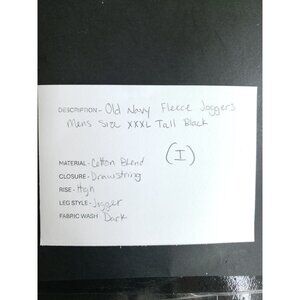 DESCRIPTION- Old Navy Fleece Joggers
Mens Size XXXL Tall Black
(I)
MATERIAL- Cotton Blend
CLOSURE- Drawstring
RISE- High
LEG STYLE- Jogger
FABRIC WASH Dark